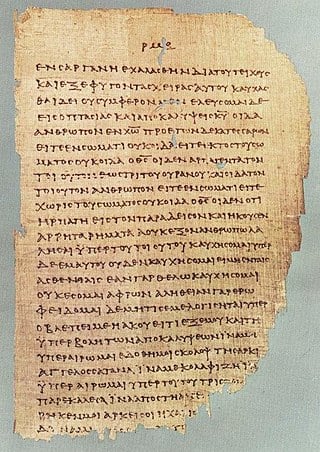 ΡΜΘ
ΕΝ ϹΑΡΓΑΝΗ ΕΧΑΛΑϹΘΗΝ ΔΙΑ ΤΟΥ ΤΕΙΧΟΥϹ
ΚΑΙ ΕΞΕΦΥΓΟΝ ΤΑϹ ΧΕΙΡΑϹ ΑΥΤΟΥ ΚΑΥΧΑϹ
ΘΑΙ ΔΕΙ ΟΥ ϹΥΜΦΕΡΟΝ ΜΕΝ ΕΛΕΥϹΟΜΑΙ ΔΕ
ΕΙϹ ΟΠΤΑϹΙΑϹ ΚΑΙ ΑΠΟΚΑΛΥΨΕΙϹ Κ̅Υ̅ ΟΙΔΑ
ΑΝΘΡΩΠΟΝ ΕΝ Χ̅Ω̅ ΠΡΟ ΕΤΩΝ ΔΕΚΑΤΕϹϹΑΡΩΝ
ΕΙΤΕ ΕΝ ϹΩΜΑΤΙ ΟΥΚ ΟΙΔΑ ΕΙΤΕ ΕΚΤΟϹ ΤΟΥ ϹΩ
ΜΑΤΟϹ ΟΥΚ ΟΙΔΑ Ο Θ̅Ϲ̅ ΟΙΔΕΝ ΑΡΠΑΓΕΝΤΑ ΤΟΝ
ΤΟΙΟΥΤΟΝ ΕΩϹ ΤΡΙΤΟΥ ΟΥΡΑΝΟΥ ΚΑΙ ΟΙΔΑ ΤΟΝ
ΤΟΙΟΥΤΟΝ ΑΝΘΡΩΠΟΝ ΕΙΤΕ ΕΝ ϹΩΜΑΤΙ ΕΙΤΕ
ΧΩΡΙϹ ΤΟΥ ϹΩΜΑΤΟϹ ΟΥΚ ΟΙΔΑ Ο Θ̅Ϲ̅ ΟΙΔΕΝ ΟΤΙ
ΗΡΠΑΓΗ ΕΙϹ ΤΟΝ ΠΑΡΑΔΕΙϹΟΝ ΚΑΙ ΗΚΟΥϹΕΝ
ΑΡΡΗΤΑ ΡΗΜΑΤΑ Α ΟΥΚ ΕΞΟΝ ΑΝΘΡΩΠΩ ΛΑ
ΛΗϹΑΙ ΥΠΕΡ ΤΟΥ ΤΟΙΟΥΤΟΥ ΚΑΥΧΗϹΟΜΑΙ ΥΠΕΡ
ΔΕ ΕΜΑΥΤΟΥ ΟΥΔΕΝ ΚΑΥΧΗϹΟΜΑΙ ΕΙ ΜΗ ΕΝ ΤΑΙϹ
ΑϹΘΕΝΕΙΑΙϹ ΕΑΝ ΓΑΡ ΘΕΛΩ ΚΑΥΧΗϹΟΜΑΙ
ΟΥΚ ΕϹΟΜΑΙ ΑΦΡΩΝ ΑΛΗΘΕΙΑΝ ΓΑΡ ΕΡΩ
ΦΕΙΔΟΜΑΙ ΔΕ ΜΗ ΤΙϹ ΕΜΕ ΛΟΓΙϹΗΤΑΙ ΥΠΕΡ
Ο ΒΛΕΠΕΙ ΜΕ Η ΑΚΟΥΕΙ ΤΙ ΕΞ ΕΜΟΥ ΚΑΙ ΤΗ
ΥΠΕΡΒΟΛΗ ΤΩΝ ΑΠΟΚΑΛΥΨΕΩΝ ΙΝΑ ΜΗ
ΥΠΕΡΑΙΡΩΜΑΙ ΕΔΟΘΗ ΜΟΙ ϹΚΟΛΟΨ ΤΗ ϹΑΡΚΙ
ΑΓΓΕΛΟϹ ϹΑΤΑΝΑ ΙΝΑ ΜΕ ΚΟΛΑΦΙΖΗ
ΥΠΕΡΑΙΡΩΜΑΙ ΥΠΕΡ ΤΟΥΤΟΥ ΤΡΙϹ
ΠΑΡΕΚΑΛΕϹΑ ΙΝΑ ΑΠΟϹΤΗ
ΡΗΚΕΝ ΜΟΙ ΑΡΚΕΙ ϹΟΙ Η ΧΑΡΙϹ